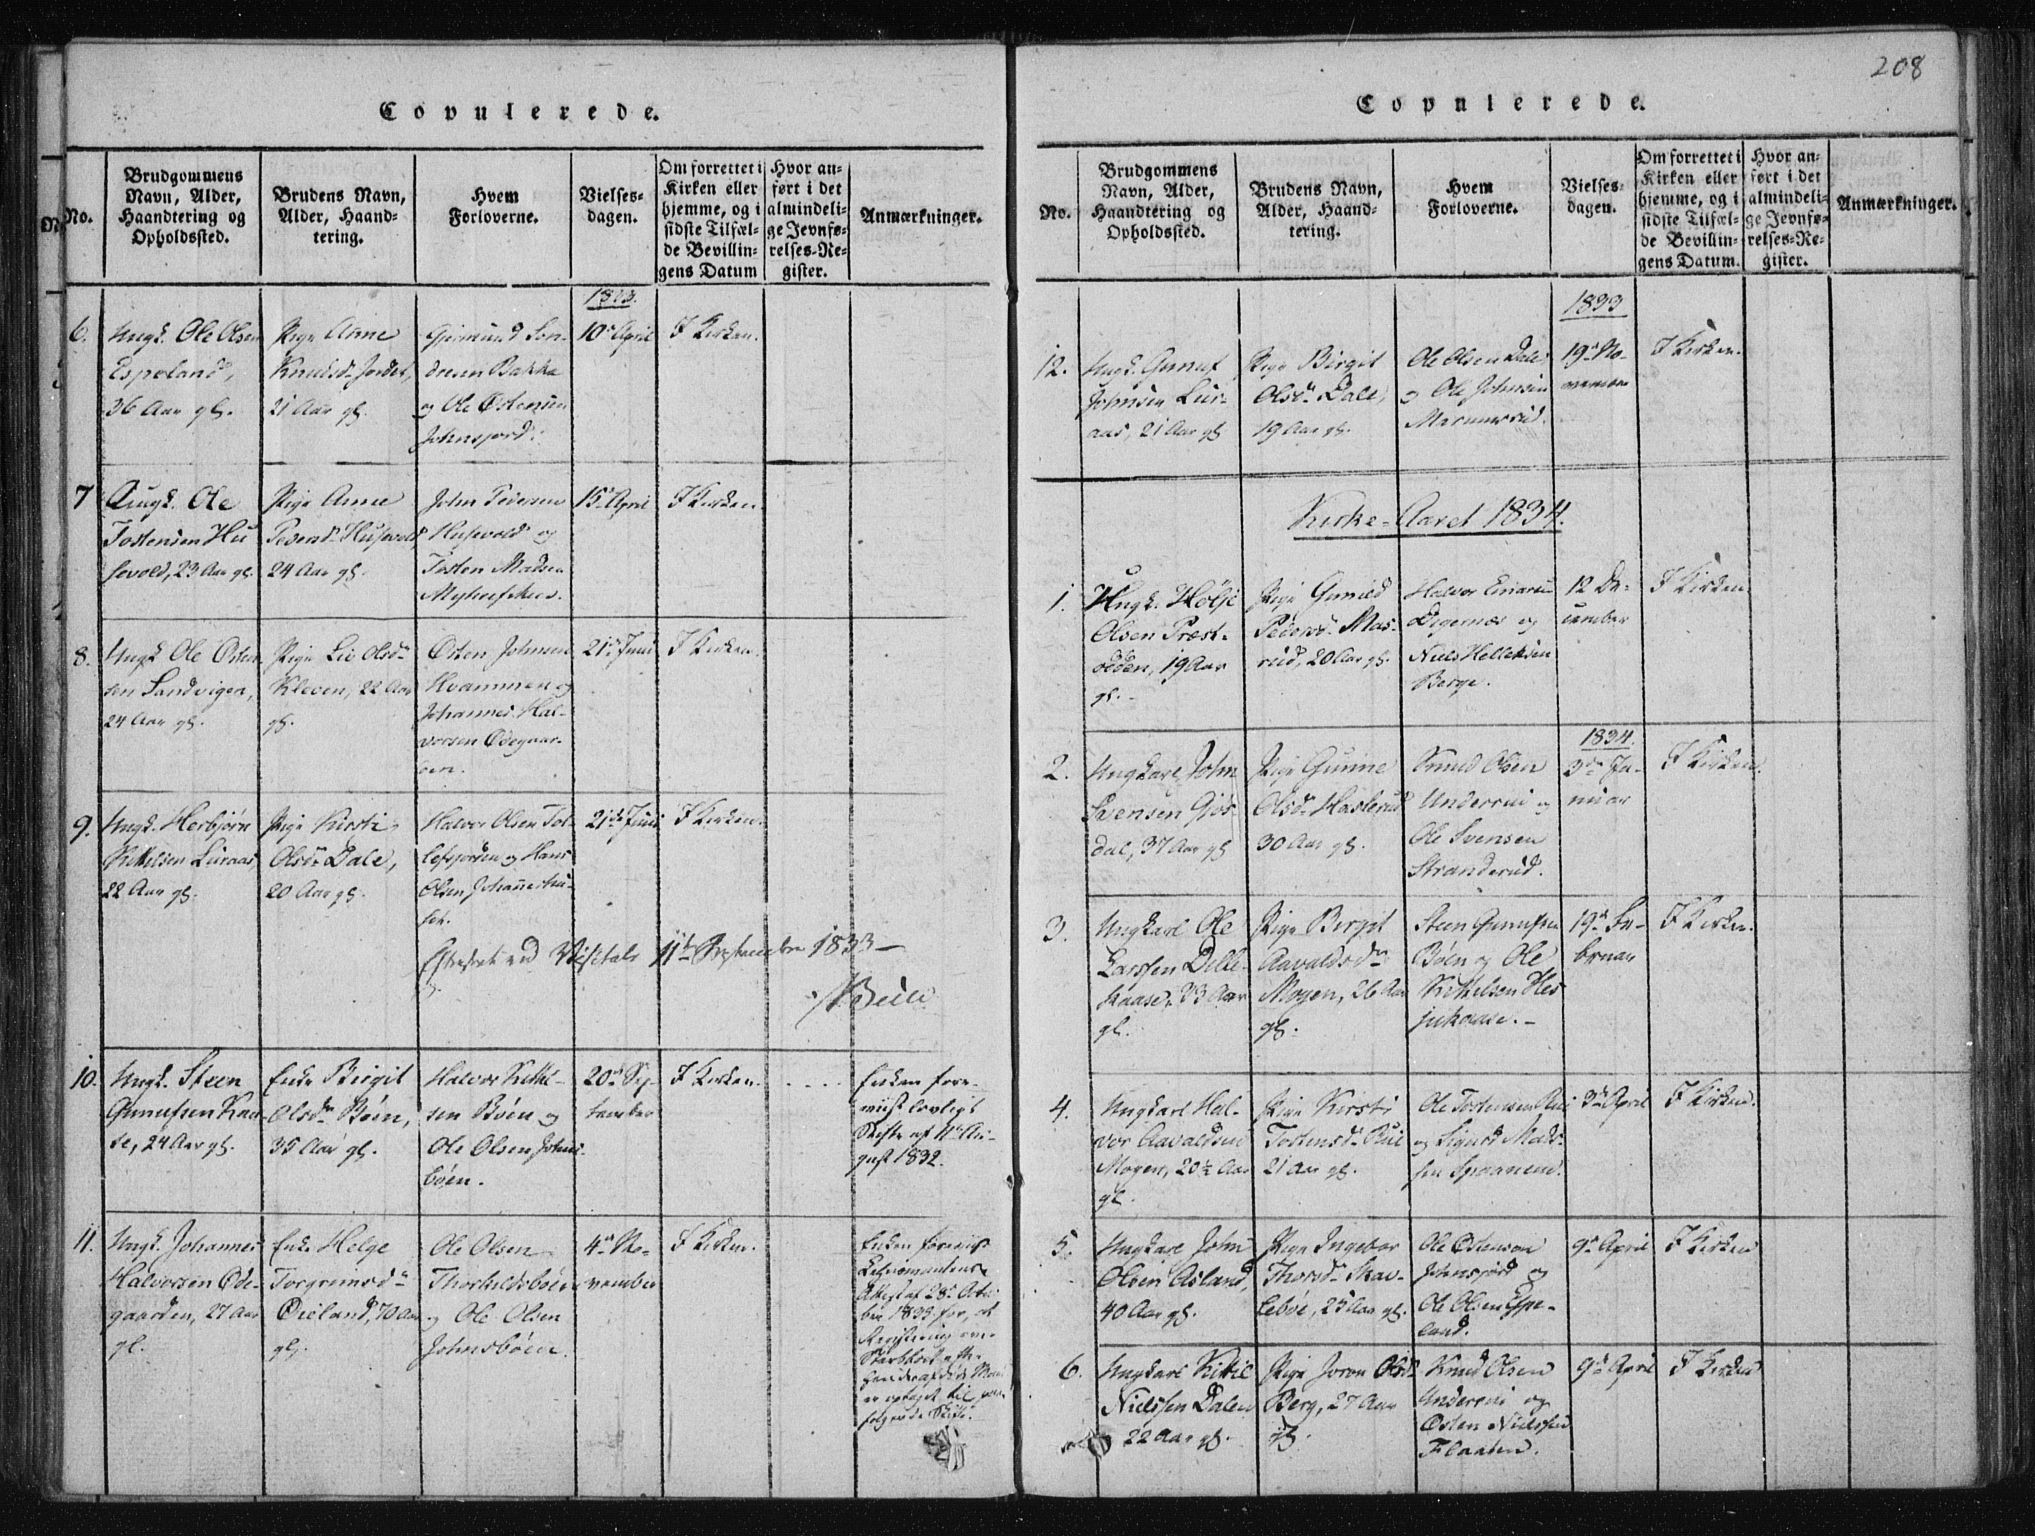 Copulerede.
No.
Brudgommens
Navn, Alder,
Haandtering og
Opholdssted.
Brudens Navn,
Alder, Haand-
tering.
Hvem
Forloverne.
Vielses-
dagen.
Om forrettet i
Kirken eller
hjemme, og i
sidste Tilfæl-
de Bevillin-
gens Datum
Hvor an-
ført i det
almindeli-
ge Jevnfø-
relses-Re-
gister.
Anmærkninger.
6.
Ungk. Ole Olsen
Espeland,
36 Aar gl.
Pige Anne
Knudsdr Jordet,
21 Aar gl.
Gjermund Son-
dresen Bakka
og Ole Østensen
Johnsjord.
10de April
I Kirken.
7
Ungk. Ole
Tostensen Hu
sevold, 23 Aar gl.
Pige Anne
Pedersdr Husevold
24 Aar gl.
John Pedersen
Husevold og
Tosten Madsen
15de April
I Kirken.
8.
Ungk. Ole Østen
sen Sandvigen,
24 Aar gl.
Pige Liv Olsdr
Kleven, 22 Aar
gl.
Østen Johnsen
Hvammen og
Johannes Hal-
vorsen Ødegaar-
den.
21de Juni
I Kirken.
9.
Ungk. Herbjørn
Kittelsen Luraas,
22 Aar gl.
Pige Kirsti
Olsdr Dale,
20 Aar gl.
Halvor Olsen Tol-
lefsjorden og Hans
Olsen
21de Juni
I Kirken.
Efterseet ved Visitats 11te September 1833
10.
Ungk. Steen
Gunnufsen Kaa
se, 24 Aar gl.
Enke Birgit
Olsdr Bøen,
35 Aar gl.
Halvor Kittil-
sen Bøen og
Ole Olsen Johns-
bøen.
20de Sep-
tember
I Kirken.
Enken fore-
viist lovligt
Skifte af 11te Au-
gust 1832.
11.
Ungk. Johannes
Halvorsen Øde-
gaarden, 27 Aar
gl.
Enke Helge
Torgrimsdr
Øieland, 70 Aar
gl.
Ole Olsen
Thorkildsbøen
og Ole Olsen
Johnsbøen.
4de No-
vember
I Kirken.
Enken foreviist
Lensmandens
Attest af 28de Octo-
ber 1833 for, at
Registrering over
Stervboet efter
hendes afdøde Mand
er optaget til paa-
følgende Skifte.
208
Copulerede.
No.
Brudgommens
Navn, Alder,
Haandtering og
Opholdssted.
Brudens Navn,
Alder, Haand-
tering.
Hvem
Forloverne.
Vielses-
dagen.
Om forrettet i
Kirken eller
hjemme, og i
sidste Tilfæl-
de Bevillin-
gens Datum.
Hvor an-
ført i det
almindeli-
ge Jevnfø-
relses-Re-
gister.
Anmærkninger.
1833
12.
Ungk. Gunuf
Johnsen Lur-
aas, 21 Aar gl
Pige Birgit
Olsdr Dale,
19 Aar gl.
Ole Olsen Dale
og Ole Johnsen
Marumsrud.
19de No-
vember
I Kirken.
Kirke-Aaret 1834.
1.
Ungk. Hølje
Olsen Præst-
odden, 19 Aar
gl.
Pige Gunild
Pedersdr Mas-
rud, 20 Aar gl.
Halvor Einarsen
Digernæs og
Niels Helleksen
Berge.
12 De-
cember
I Kirken.
1834.
2.
Ungkarl John
Svensen Gjøs-
dal, 37 Aar gl
Pige Gunne
Olsdr Haslerud
30 Aar gl.
Knud Olsen
Underrui og
Ole Svensen
Stranderud.
3die Ja-
nuar
I Kirken.
3.
Ungkarl Ole
Larssen Dille-
kaase, 23 Aar
gl.
Pige Bergit
Aavaldsdr
Mogen, 26 Aar
gl.
Steen Gunufsen
Bøen og Ole
Kittelsen Hes
jukaase.
19de Fe-
bruar
I Kirken.
4.
Ungkarl Hal-
vor Aavaldsen
Mogen, 20½ Aar
gl.
Pige Kirsti
Tostensdr Rui
21 Aar gl.
Ole Tostensen Rui
og Sigurd Mads-
sen Spaanem.
3die April
I Kirken.
5.
Ungkarl John
Olsen Aasland,
40 Aar gl.
Pige Ingebor
Thorsdr Skav-
lebøe, 25 Aar gl.
Ole Østensen
Johnsjord og
Ole Olsen Espe-
land.
9de April
I Kirken
6.
Ungkarl Kittil
Nielssen Dalen
22 Aar gl.
Pige Joron Olsdr
Berg, 27 Aar
gl.
Knud Olsen
Underrui og
Østen Nielssen
Flaaten.
9de April
I Kirken